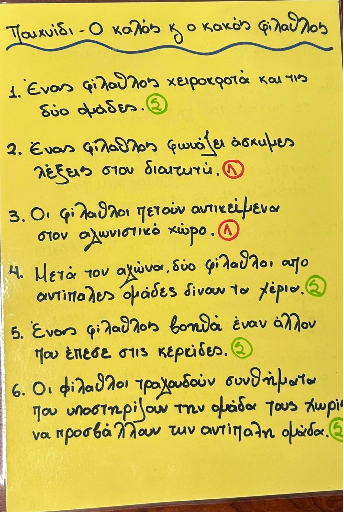 Παιχνίδι - Ο καλός κ ο κακός φίλαθλος
1. Ένας φίλαθλος χειροκροτά και τις
δύο ομάδες. Σ
2. Ένας φίλαθλος φωνάζει άσχημες
λέξεις στον διαιτητή. Λ
3. Οι φίλαθλοι πετούν αντικείμενα
στον αγωνιστικό χώρο. Λ
4. Μετά τον αγώνα, δύο φίλαθλοι απο
αντίπαλες ομάδες δίνουν τα χέρια. Σ
5. Ένας φίλαθλος βοηθά έναν άλλον
που έπεσε στις κερκίδες. Σ
6. Οι φίλαθλοι τραγουδούν συνθήματα
που υποστηρίζουν την ομάδα τους χωρίς
να προσβάλλουν την αντίπαλη ομάδα. Σ